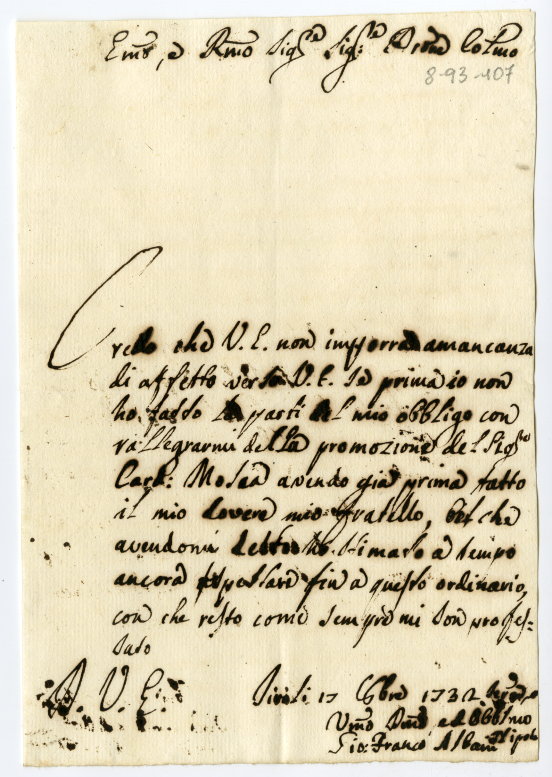 Emo, e Rmo Sigre Sigre Prone Colmo
8-93-407
Credo che V. E. non imporrà amancanza
di affetto verso V. E. se prima io non
ho fatto le parti del mio obbligo con
rallegrarmi della promozione del Sigre
Card: Mosca avendo già prima fatto
il mio dovere mio fratello, che
avendomi detto ho stimato a tempo
ancora aspettare fin a questo ordinario,
con che resto come sempre mi son profes-
sato
D. V. E.
17 Gbre 1732
Umo Dmo ed Obbmo
Gio: Franco Albani